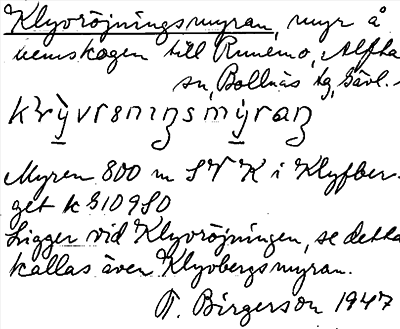 Klyvröjningsmyran, myr å
hemskogen till Runemo, Alfta
sn, Bollnäs tg, Gävl.
Myren 800 m SV K i Klyfber-
get k G10950
Ligger vid Klyvröjningen, se detta
kallas även Klyvbergsmyran.
T. Birgerson 1947